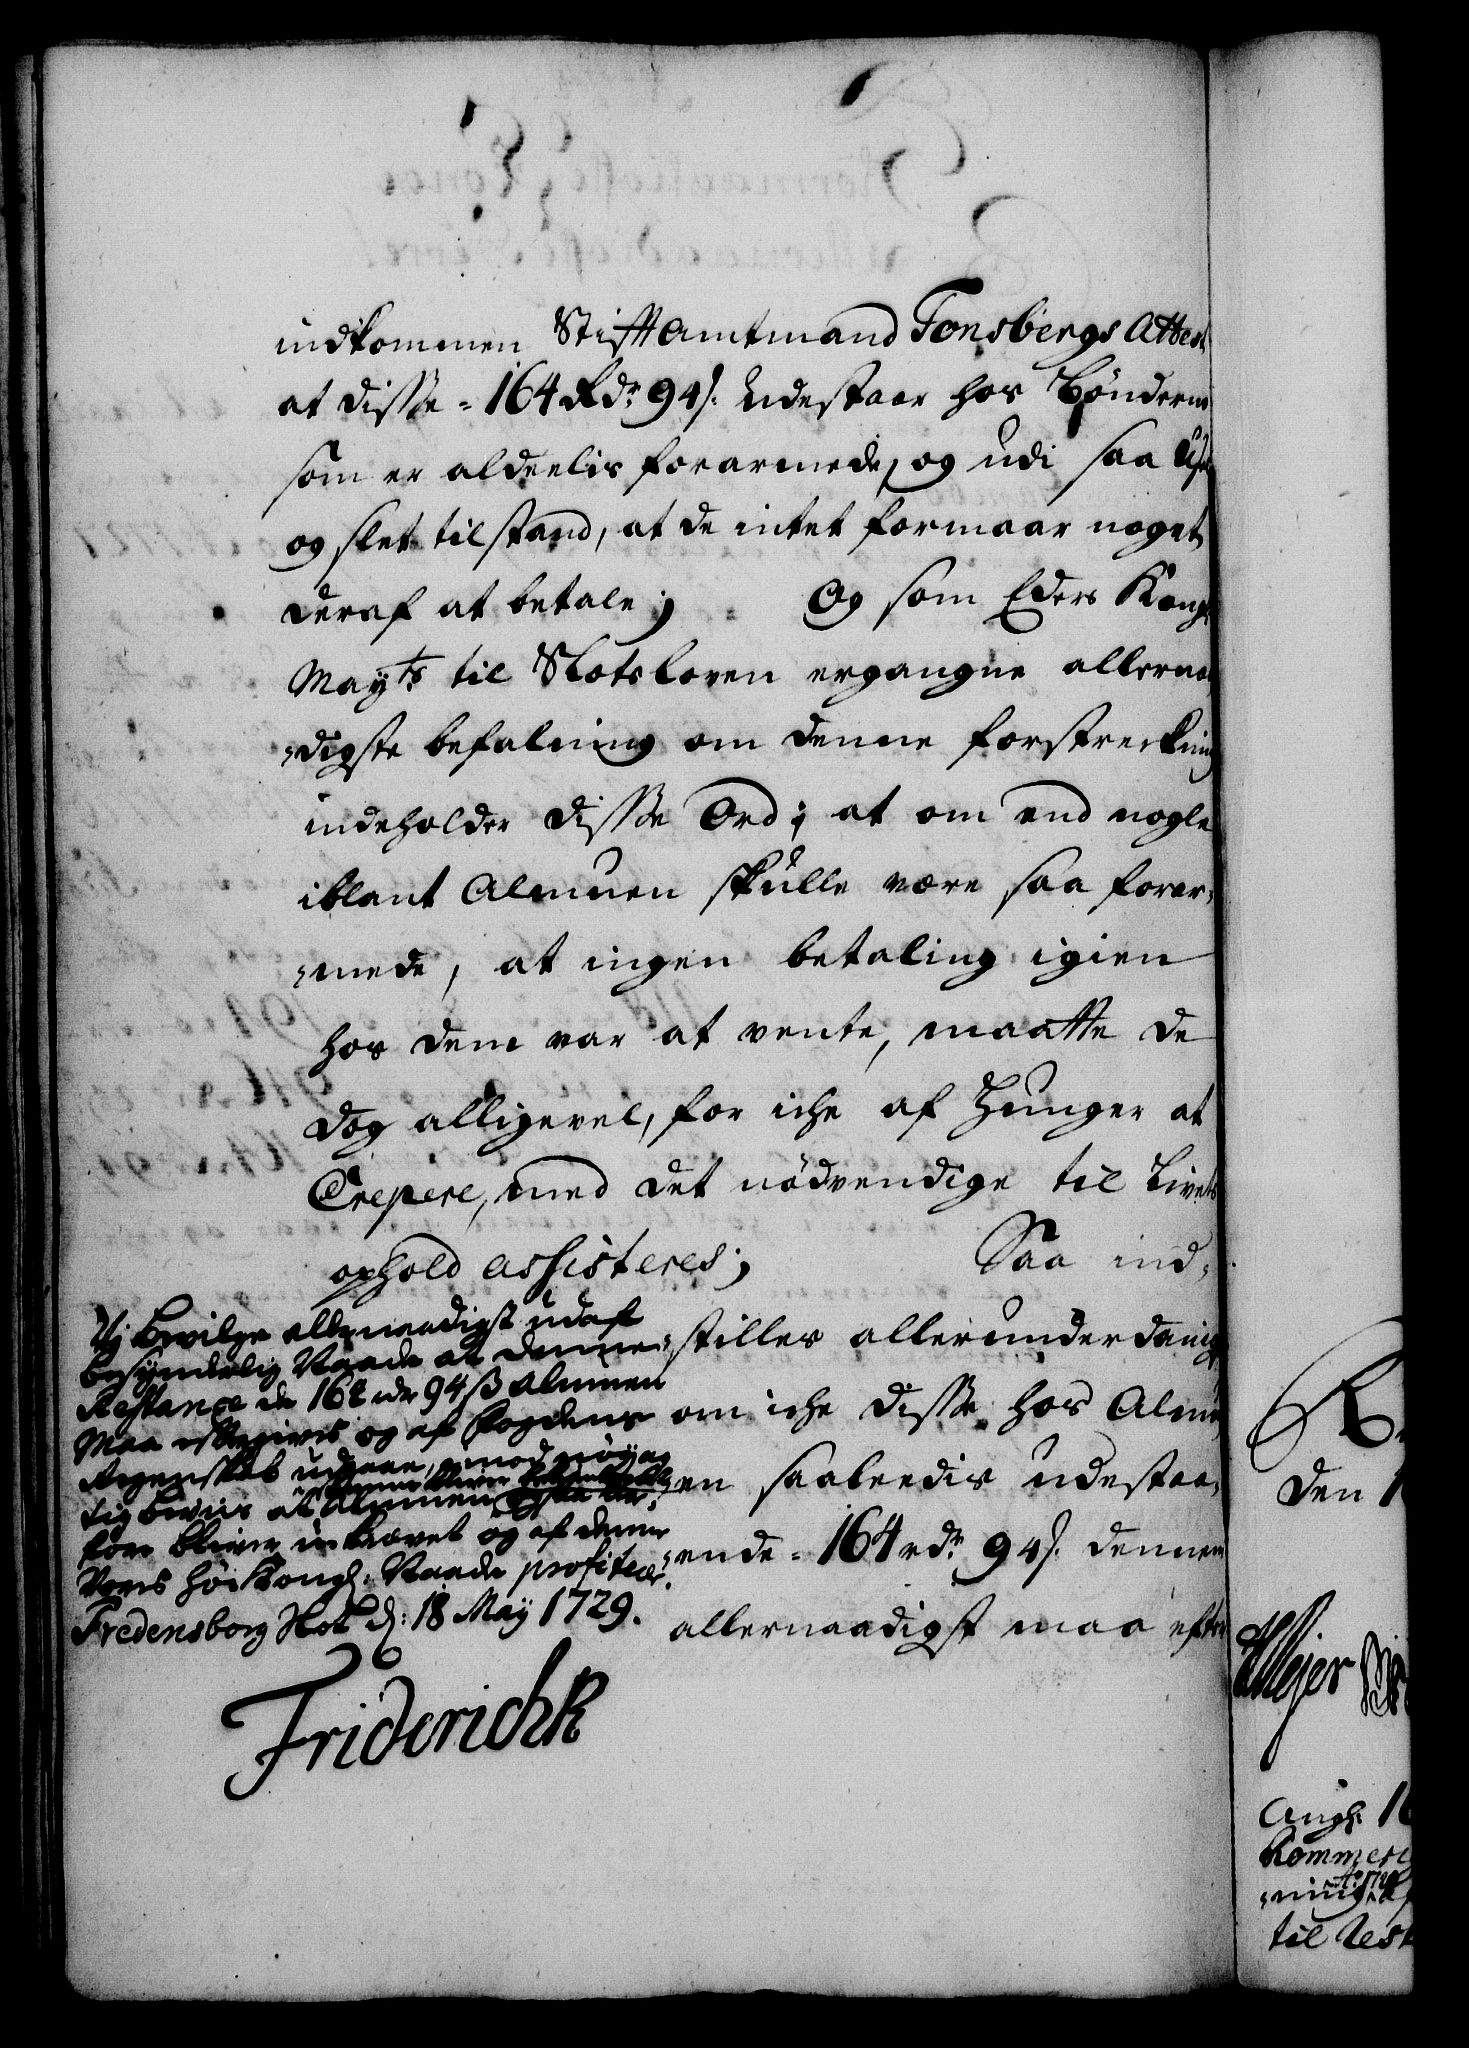 indkommen StifftAmtmand Tonsbergs Attest
at disse = 164 Rdr 94 s. udestaar hos Bønderne
som er aldeelis forarmede, og udi saa
og slet tilstand, at de intet formaar noget
deraf at betale; Og som Eders Kongl
Mayts til Slotsloven ergangne allernaa
=digste befalning om denne forstreckning
indeholder disse Ord; at om end nogle
iblant Almuen skulle være saa forar=
=mede, at ingen betaling igien
hos dem var at vente, maatte de
dog alligevel, for iche af Hunger at
Crepere, med det nødvendige til Livets
ophold assisteres; Saa ind=
=stilles allerunderdanig
om iche disse hos Almu
=en saaleedis udestaa=
=ende = 164 rdr 94 s. dennem
allernaadigst maa efter
Vj bevilge allernaadigst udaf
besynderlig Naade at denne
Restance de 164 rdr 94 ß Almuen
maa eftergives og af fogdens
Regenskab udgaae, mod nøyag
tig beviis at Almuen
fore bliver u-kravet og af denne
Vores høi Kongl. Naade profiterer.
Fredensborg Slot d: 18 May 1729.
FriderichR
den 1
Meyer
Angl. 16
Kommere
=ning
til Rest